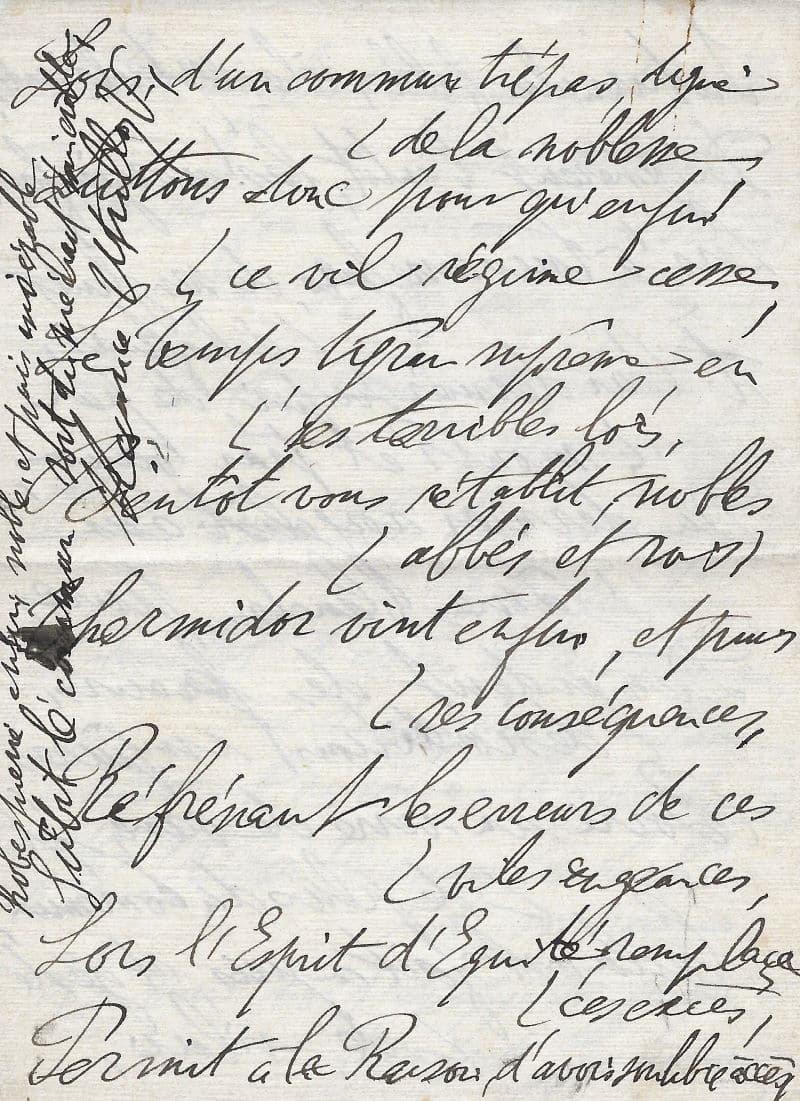 Lors, d'un commun trépas, digne
( de la noblesse,
Luttons donc pour qu'enfin
( ce vil régime cesse,
Le temps tyran suprême en
( ses terribles lois,
Bientôt vous rétablit, nobles
( abbés et rois,
Thermidor vint enfin, et puis
( ses conséquences,
Réfrénant les erreurs de ces
( viles engeances,
Lors l'Esprit d'Equité remplaça
( ces excès,
Permit à la Raison, d'avoir son libre accès
Robespierre noble, et puis misérable
Subit le commun sort du méchant